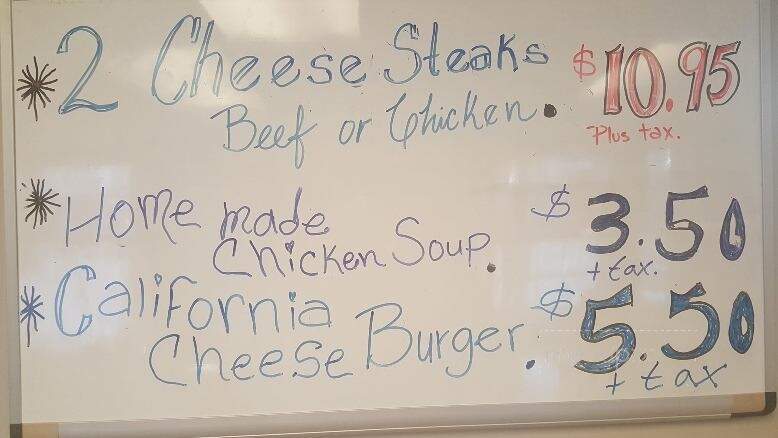 * 2 Cheese Steaks $10.95
Beef or Chicken. Plus tax.
* Home made $3.50
Chicken Soup. + tax.
* California $5.50
Cheese Burger. + tax